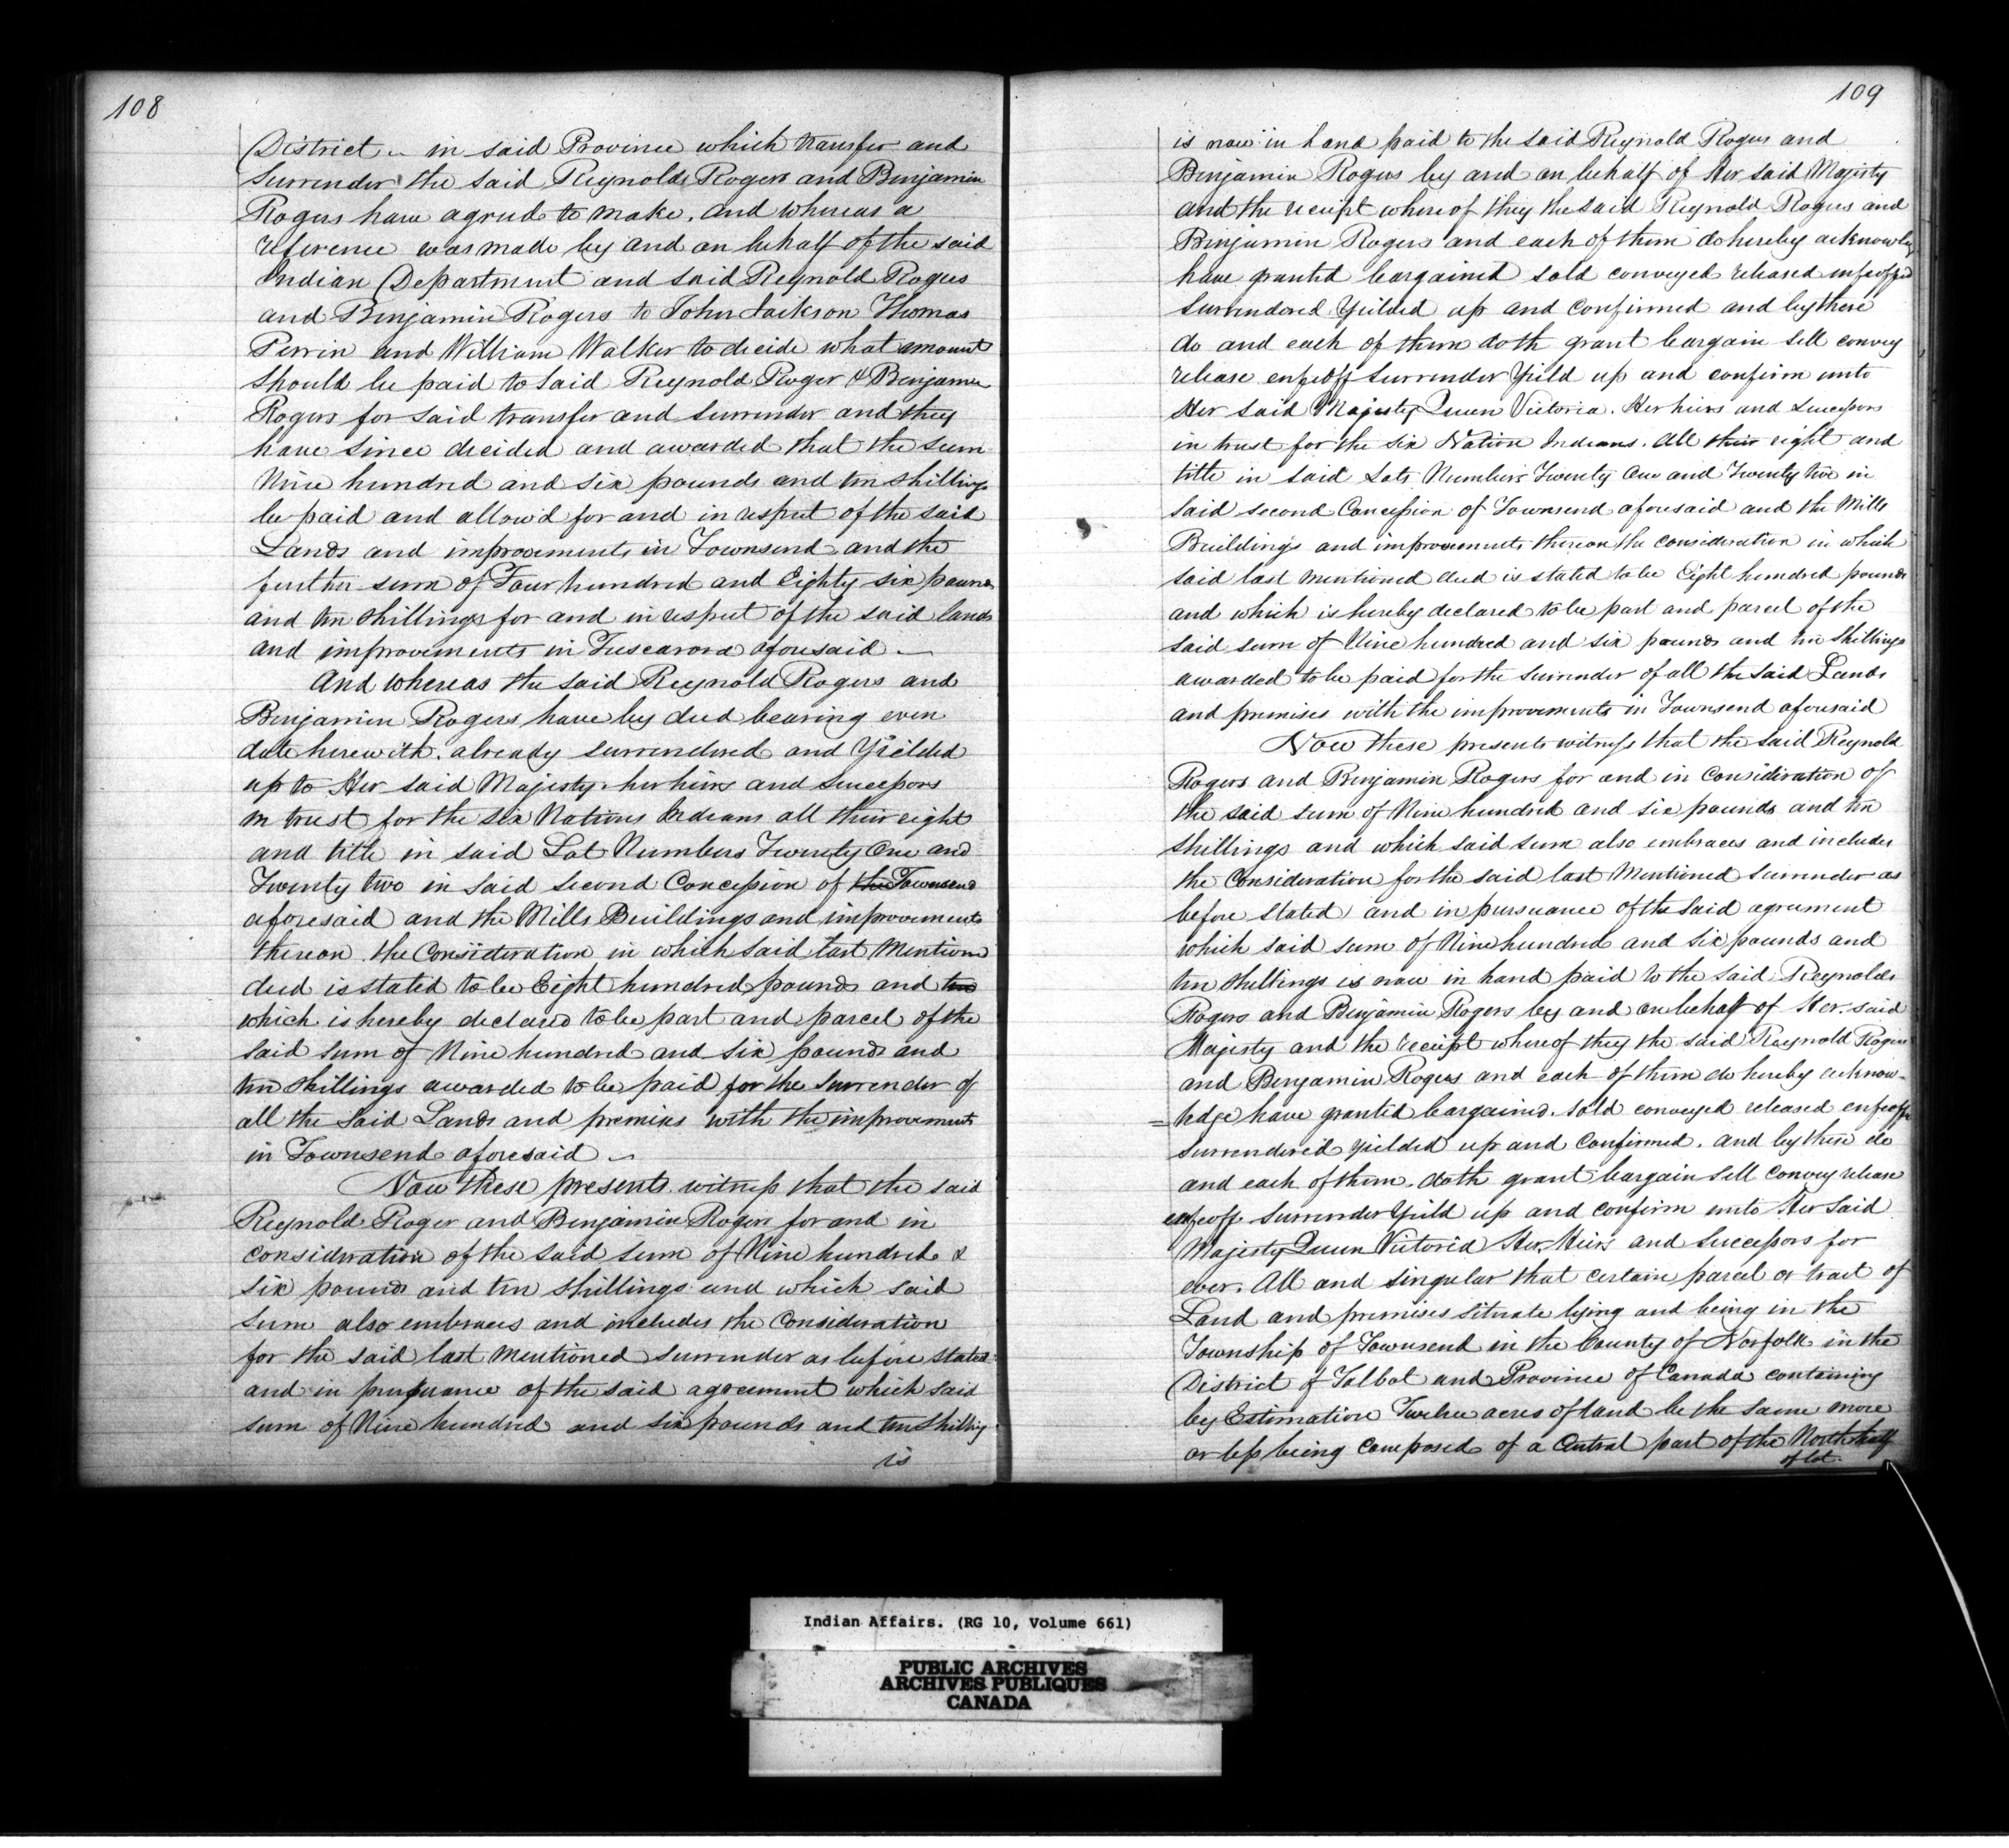 108
District in said Province which transfer and
Surrender the said Reynold Rogers and Benjamin
Rogers have agreed to make. And whereas a
reference was made by and on behalf of the said
Indian Department and said Reynold Rogers
and Benjamin Rogers to John Jackson Thomas
Perrin and William Walker to decide what amount
should be paid to said Reynold Roger & Benjamin
Rogers for said transfer and surrender and they
have since decided and awarded that the sum
Nine hundred and six pounds and ten shillings
be paid and allow'd for and in respect of the said
Lands and improvements in Townsend and the
further sum of Four hundred and Eighty six pounds
and ten shillings for and in respect of the said lands
and improvements in Tuscarora aforesaid
And whereas the said Reynold Rogers and
Benjamin Rogers have by deed bearing even
date herewith already surrendered and Yielded
up to Her said Majesty her heirs and Successors
in trust for the six Nations Indians all their right
and title in said Lot Numbers Twenty One and
Twenty two in said second Concession of the Townsend
aforesaid and the Mills Buildings and improvements
thereon the Consideration in which said last Mentiond
deed is stated to be Eight hundred pounds and ten
which is hereby declared to be part and parcel of the
said sum of Nine hundred and six pounds and
ten shillings awarded to be paid for the surrender of
all the said Lands and premises with the improvements
in Townsend aforesaid
Now these presents witness that the said
Reynold Roger and Benjamin Rogers for and in
consideration of the said sum of Nine hundred &
six pounds and ten shillings and which said
sum also embraces and includes the Consideration
for the said last Mentioned surrender as before stated
and in pursuance of the said agreement which said
sum of Nine hundred and six pounds and ten shilling
is
109
is now in hand paid to the said Reynold Rogers and
Benjamin Rogers by and on behalf of Her said Majesty
and the receipt whereof they the said Reynold Rogers and
Benjamin Rogers and each of them do hereby acknowledge
have granted bargained sold conveyed released enfeoffed
surrendered Yielded up and confirmed and by these
do and each of them doth grant bargain sell convey
release enfeoff surrender Yield up and confirm unto
Her said Majesty Queen Victoria. Her heirs and Successors
in trust for the six Nation Indians. all their right and
title in said Lots Numbers Twenty One and Twenty two in
said second Concession of Townsend aforesaid and the Mills
Buildings and improvements thereon the consideration in which
said last mentioned deed is stated to be Eight hundred pounds
and which is hereby declared to be part and parcel of the
said sum of Nine hundred and six pounds and ten shillings
awarded to be paid for the surrender of all the said Lands
and premises with the improvements in Townsend aforesaid
Now these presents witness that the said Reynold
Rogers and Benjamin Rogers for and in Consideration of
the said sum of Nine hundred and six pounds and ten
shillings and which said sum also embraces and includes
the Consideration for the said last Mentioned surrender as
before stated and in pursuance of the said agreement
which said sum of Nine hundred and six pounds and
ten shillings is now in hand paid to the said Reynolds
Rogers and Benjamin Rogers by and on behalf of Her said
Majesty and the receipt whereof they the said Reynold Rogers
and Benjamin Rogers and each of them do hereby acknow-
=ledge have granted bargained. sold conveyed released enfeoffd
surrendered yielded up and Confirmed. and by these do
and each of them. doth grant bargain sell convey release
enfeoff surrender Yield up and confirm unto Her said
Majesty Queen Victoria Her Heirs and Successors for
ever. All and singular that certain parcel or tract of
Land and premises situate lying and being in the
Township of Townsend in the County of Norfolk in the
District of Talbot and Province of Canada containing
by Estimation Twelve acres of land be the same more
or less being composed of a Central part of the North half
of lot
Indian Affairs. (RG 10, Volume 661)
PUBLIC ARCHIVES
ARCHIVES PUBLIQUES
CANADA